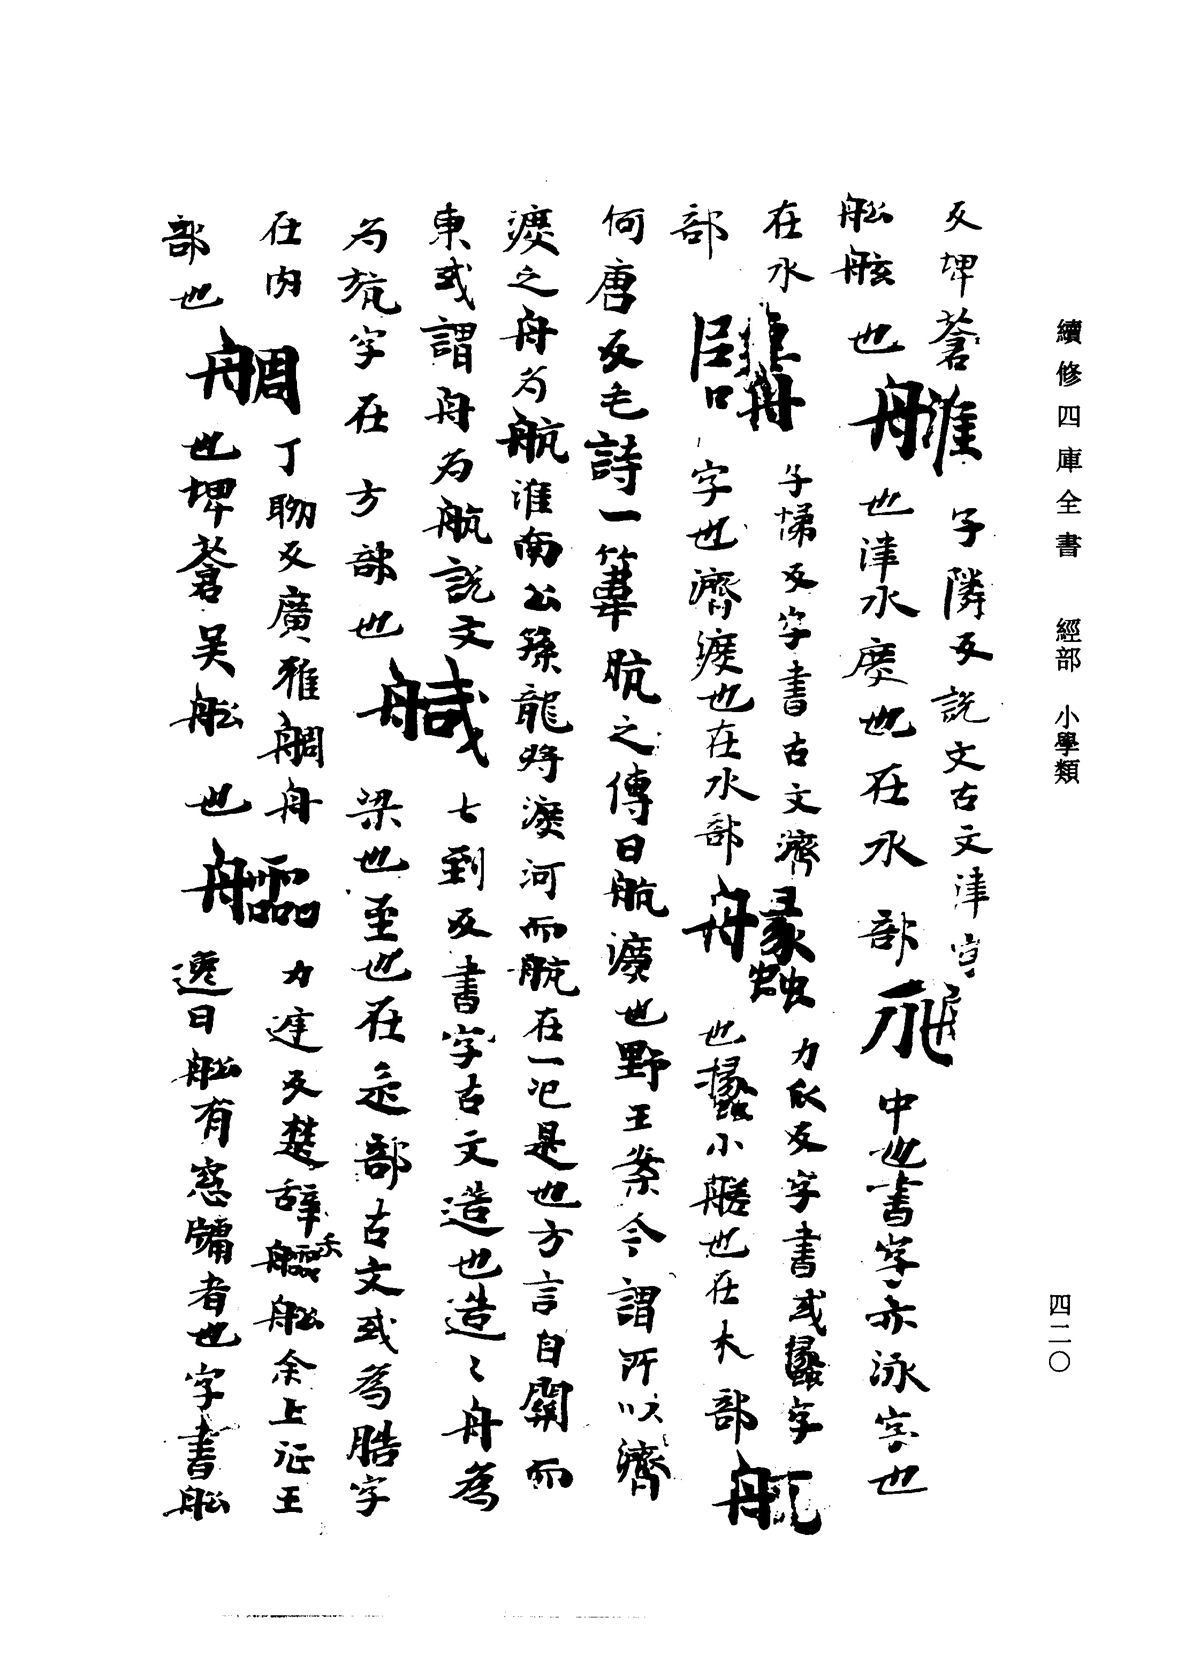 續修四庫全書 經部 小學類
四二〇
反埤蒼
舩舷也
子隣反說文古文津字
也津水度也在水部
中也書字亦泳字也
在水
部
子悌反字書古文濟
字也濟渡也在水部
力反字書或蠡字
也蠡小艖也在木部
航
何唐反毛詩一葦航之傳曰航渡也野王案今謂所以濟
渡之舟為航淮南公孫龍將渡河而航在一汜是也方言自關而
東或謂舟為航說文
為斻字在方部也
七到反書字古文造也造〻舟為
梁也至也在辵部古文或為字
在内
部也
丁聊反廣雅舟
也埤蒼吴舩也
力反楚辝乘舩余上沅王
逸曰舩有窓牖者也字書舩